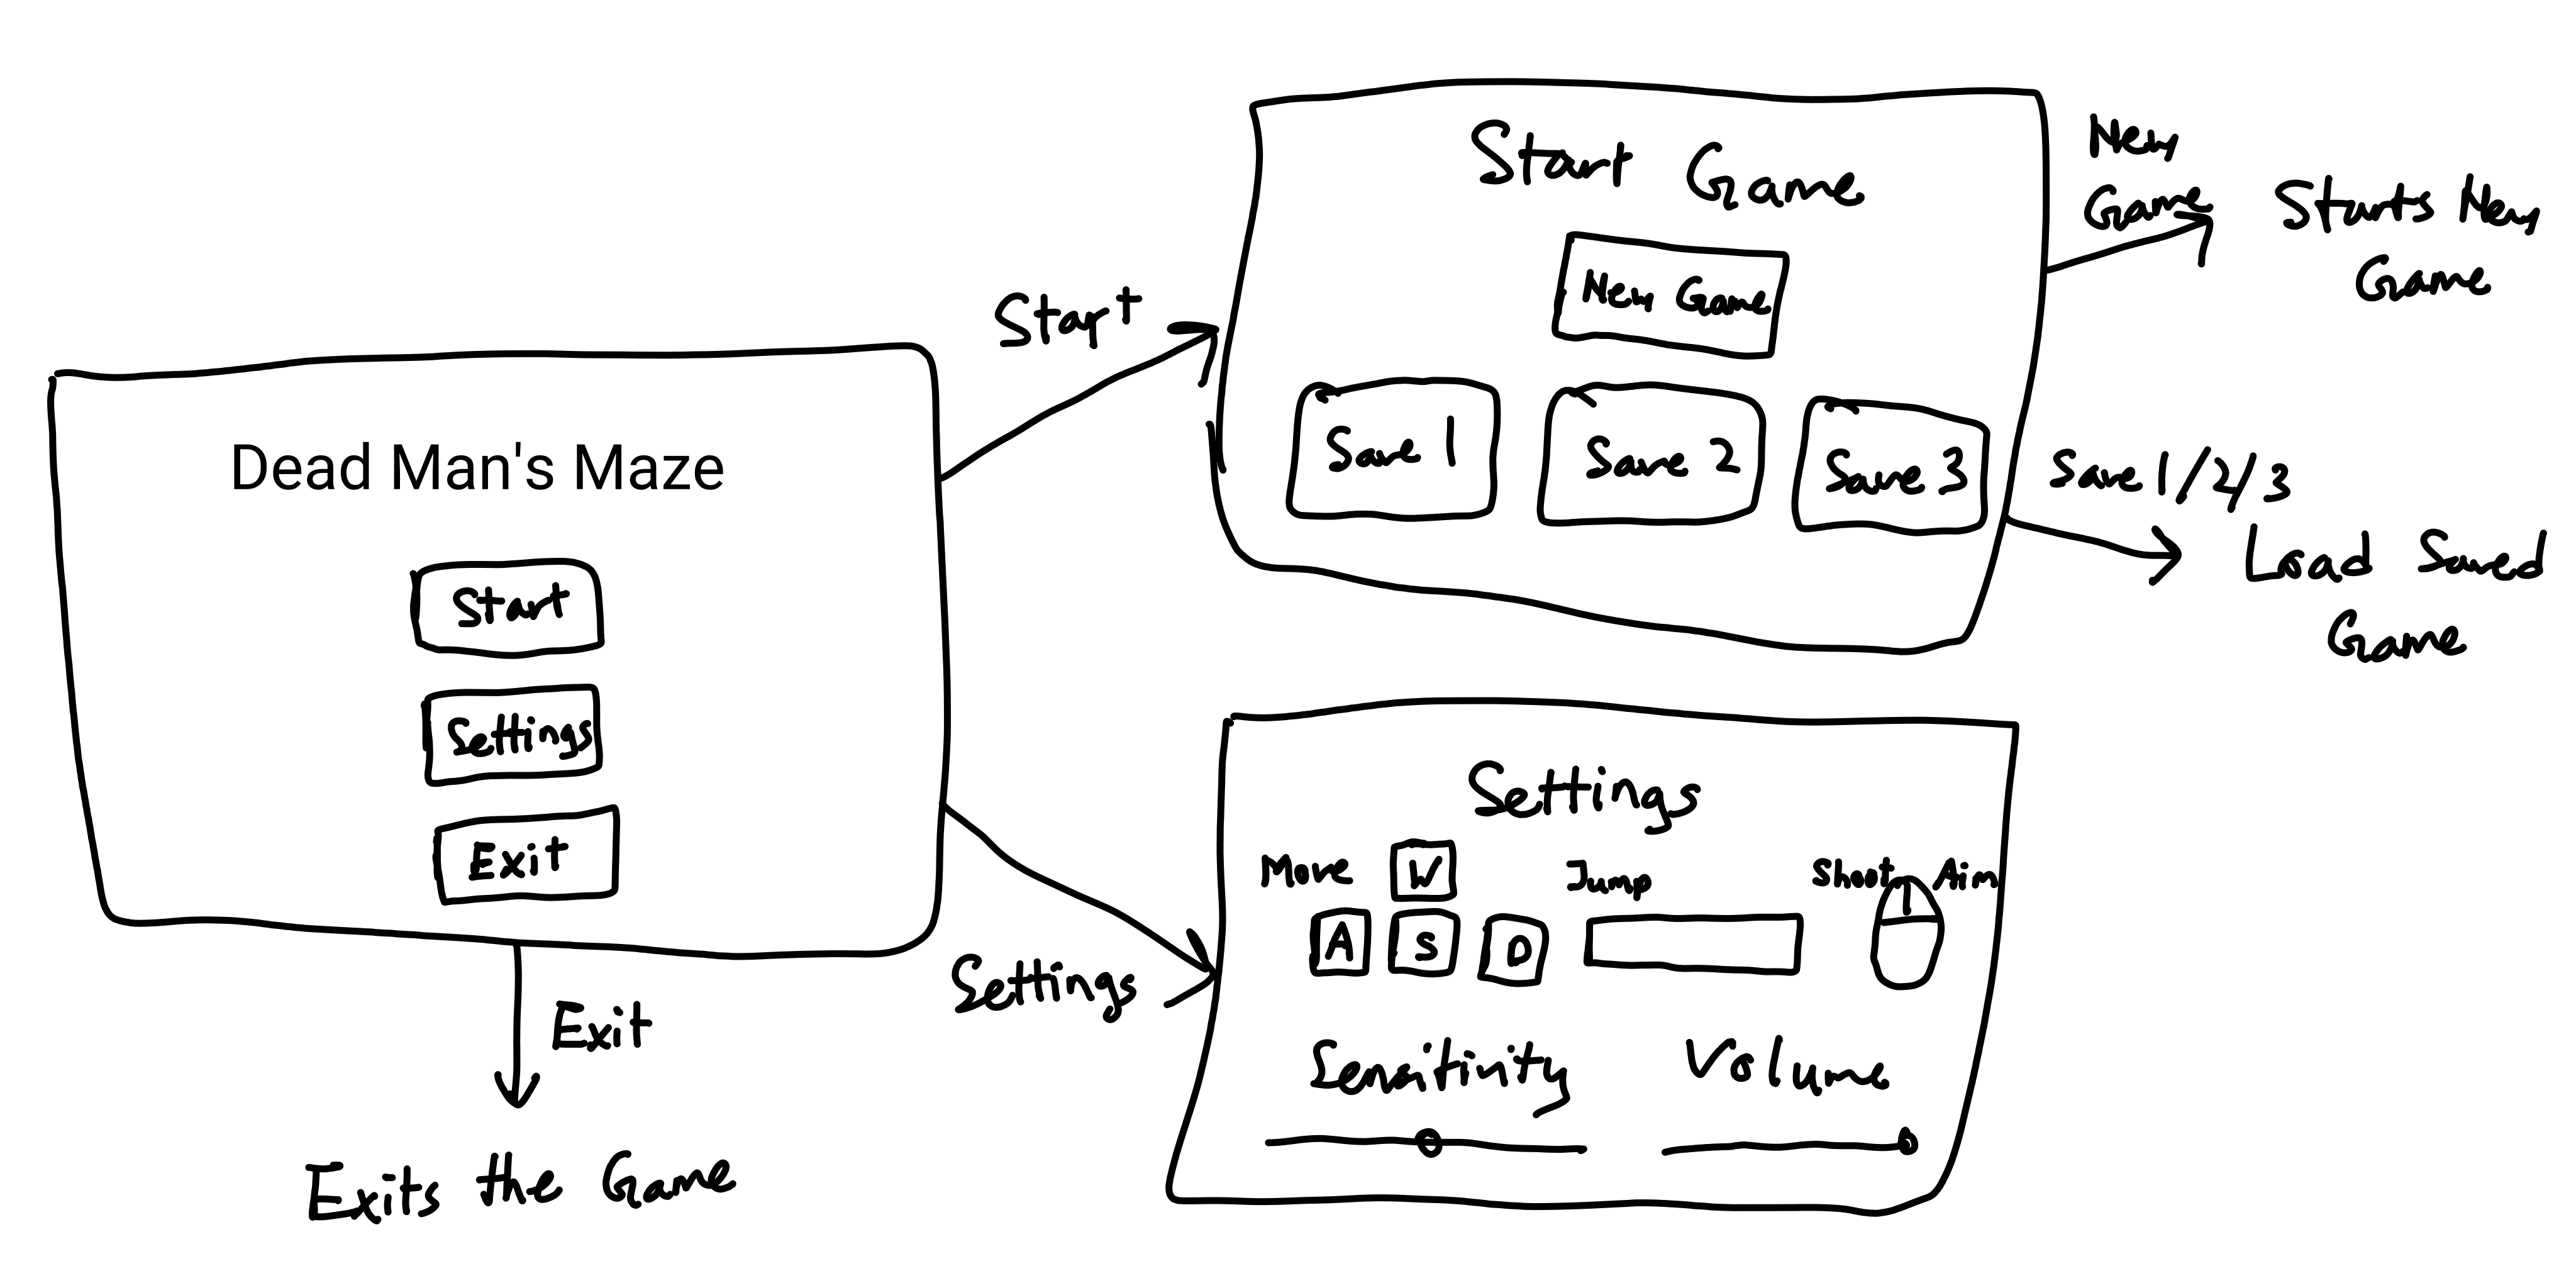 Dead Man's Maze
Start
Settings
Exit
Exit
Exits the Game
Start
Start Game
New Game
Save 1
Save 2
Save 3
New
Game
Starts New
Game
Save 1/2/3
Load Saved
Game
Settings
Settings
Move
W
A
S
D
Jump
Shoot
Aim
Sensitivity
Volume